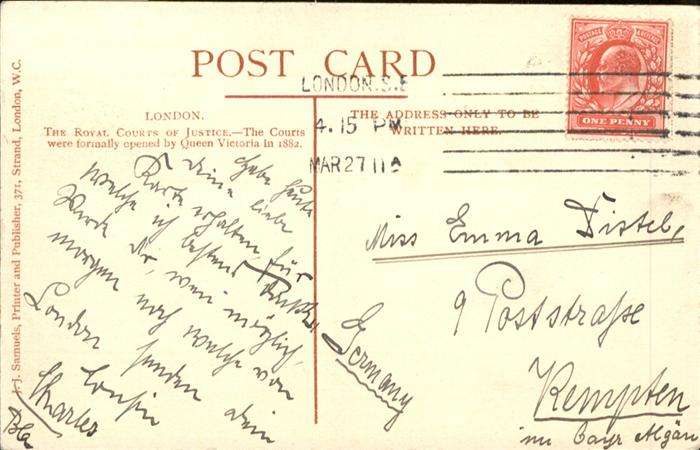 POST CARD
LONDON.
THE ROYAL COURTS OF JUSTICE.—The Courts
were formally opened by Queen Victoria in 1882.
THE ADDRESS ONLY TO BE
WRITTEN HERE.
J. Samuels, Printer and Publisher, 371, Strand, London, W.C.
LONDON.S.E
4.15 PM
MAR 27 11
POSTAGE & REVENUE
ONE PENNY
Habe heute
Deine liebe
Karte erhalten, für
welche ich bestens danke.
Werde Dir, wenn möglich,
morgen noch welche von
London senden Dein
Cousin
Charles
Miss Emma Distel,
9 Poststraße
Kempten
im bayr Algäu
Germany